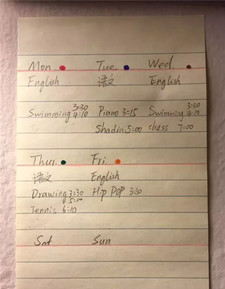 Mon Tue Wed
English 语文 English
Swimming 3:30 4:10 Piano 3:15 Swimming 3:30 4:10
Shadin 5:00 chess 7:00
Thur Fri
语文 English
Drawing 3:30 5:00 Hip POP 3:30
Tennis 6:10
Sat Sun